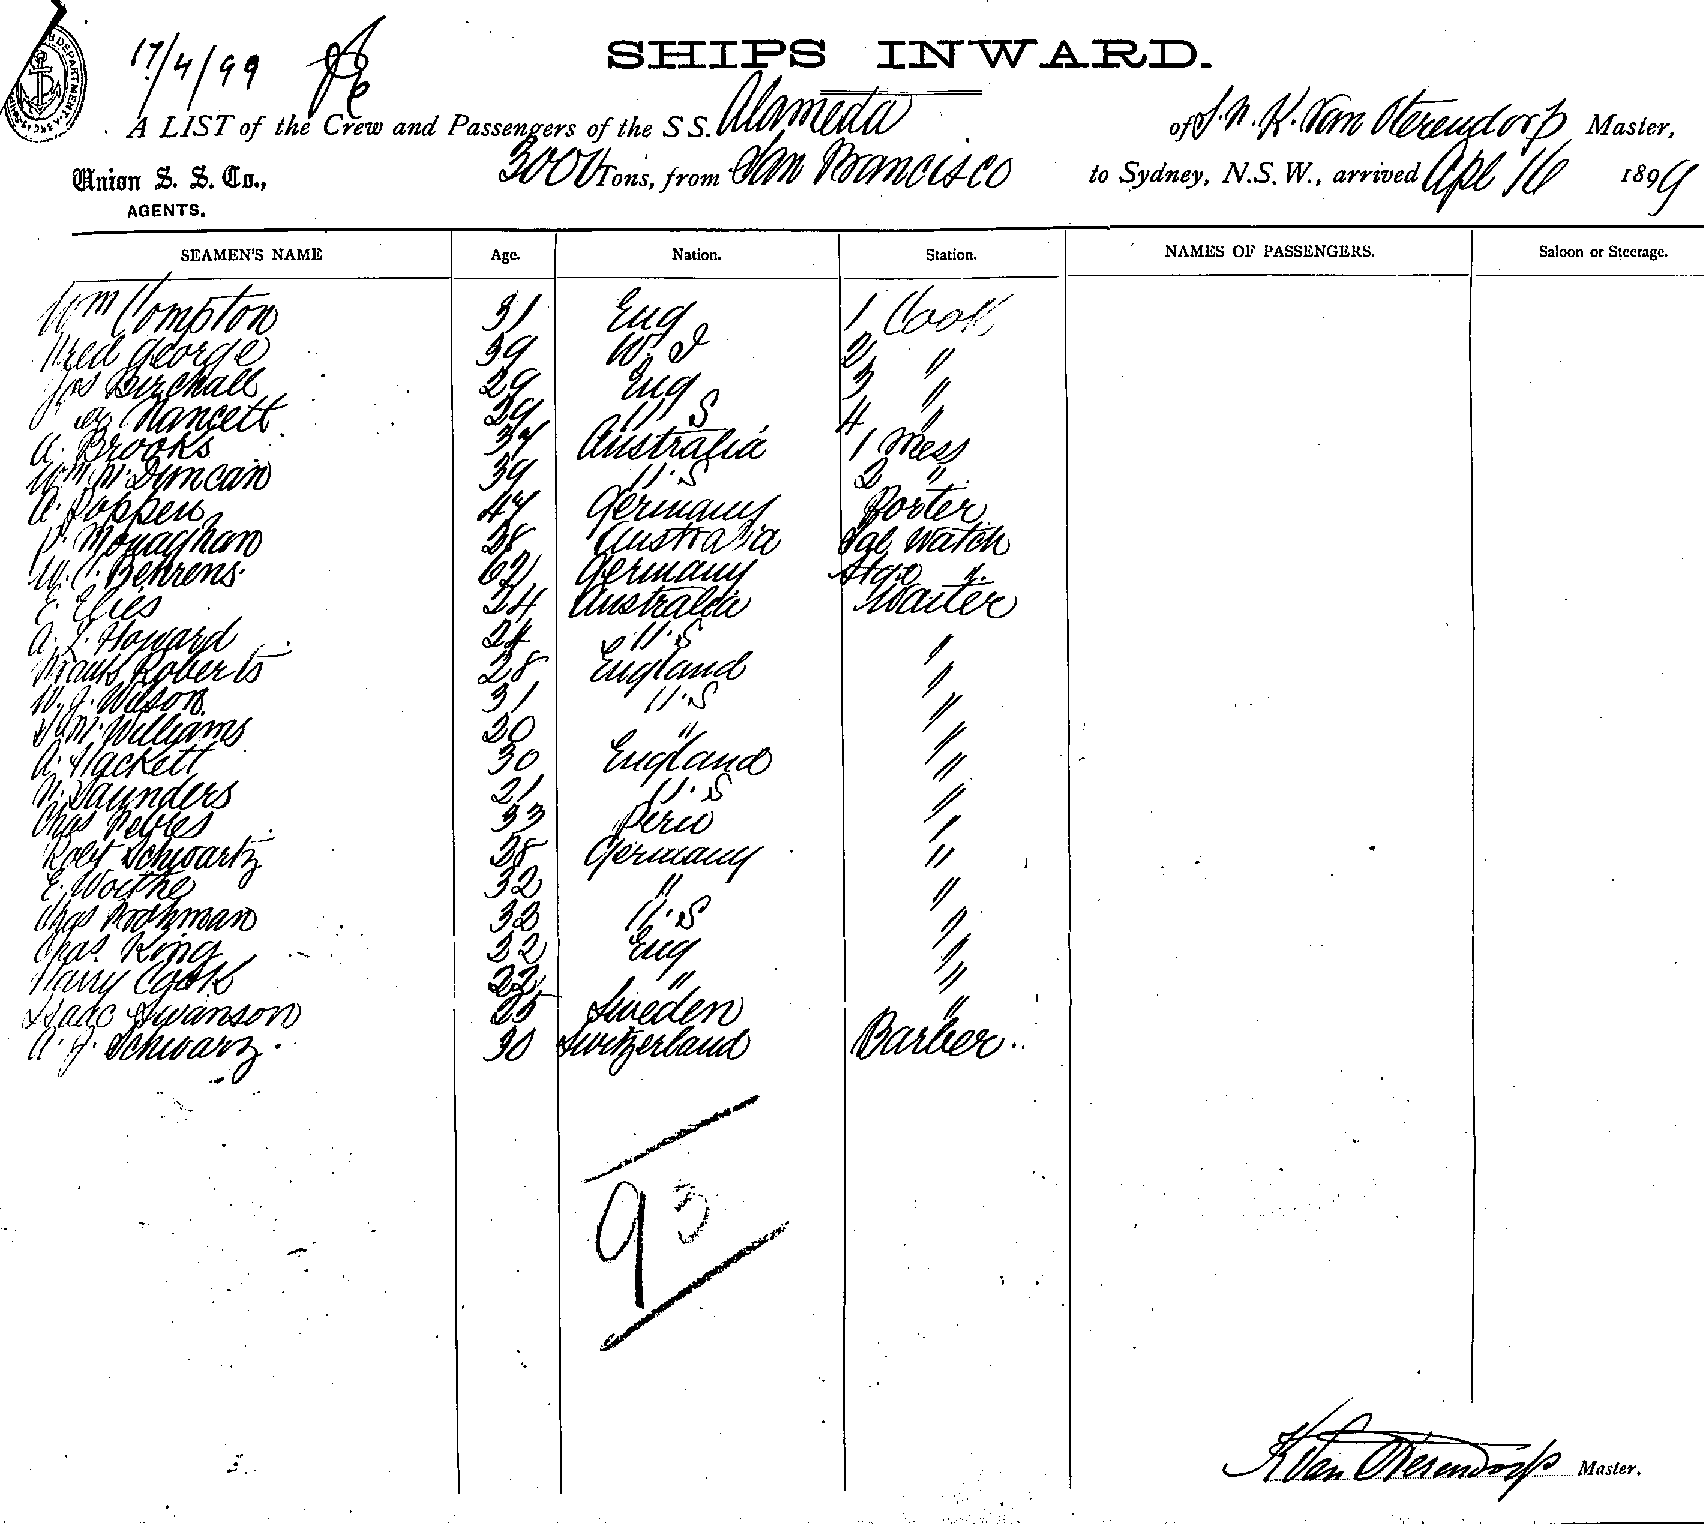 17/4/99
SHIPS INWARD.
A LIST of the Crew and Passengers of the S S. Alameda of K. Van Oterendorp Master,
Union S. S. Co., 3000 Tons, from San Francisco to Sydney, N.S.W., arrived Apl 16 1899
AGENTS.
SEAMEN'S NAME Age. Nation. Station. NAMES OF PASSENGERS. Saloon or Steerage.
Wm Compton 31 Eng 1 Cook
Fred George 39 W. I 2 "
Jos Birchall 29 Eng 3 "
Hancett 39 U S 4 "
A. Brooks 37 Australia 1 Mess
Wm W. Duncan 39 U. S 2 "
A. Poppen 47 Germany Porter
P. Monaghan 38 Australia Sal Watch
W. C. Behrens 62 Germany Stge "
E. Elies 24 Australia Waiter
A. L. Howard 24 U. S "
Frank Roberts 28 England "
W. J. Wilson 31 U. S "
Williams 30 " "
A. Hackett 30 England "
Saunders 21 U. S "
Chas 33 Peru "
Robt Schwartz 38 Germany "
E. Woithe 32 " "
Chas 33 U. S "
Chas. King 32 Eng "
Harry Cook 22 " "
Isaac Swanson 25 Sweden "
A. J. Schwarz. 30 Switzerland Barber
93
K Van Oterendorp Master.